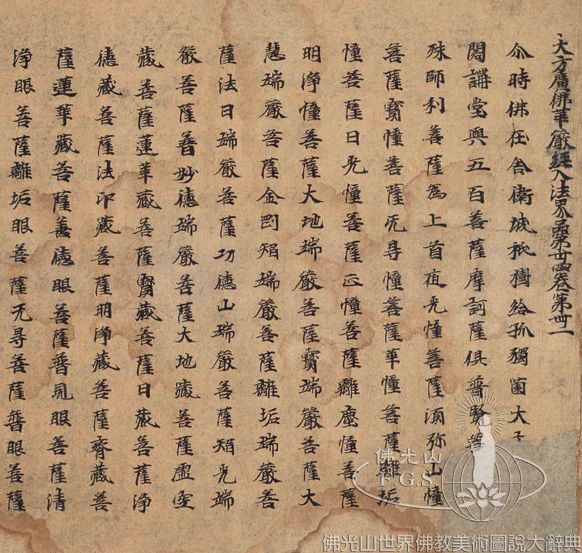 大方廣佛華嚴經入法界品第卅四卷第卌二
尒時佛在舍衛城祇樹給孤獨園大
閣講堂與五百菩薩摩訶薩俱普賢菩
殊師利菩薩為上首光幢菩薩須弥山幢
菩薩寶幢菩薩无㝵幢菩薩華幢菩薩離垢
幢菩薩日光幢菩薩正幢菩薩離塵幢菩薩
明淨幢菩薩大地端嚴菩薩寶端嚴菩薩大
慧端嚴菩薩金剛智端嚴菩薩離垢端嚴菩
薩法日端嚴菩薩功德山端嚴菩薩智光端
嚴菩薩普妙德端嚴菩薩大地藏菩薩虛空
藏菩薩蓮華藏菩薩寶藏菩薩日藏菩薩淨
德藏菩薩法印藏菩薩明淨藏菩薩齊藏菩
薩蓮華藏菩薩善德眼菩薩普見眼菩薩清
淨眼菩薩離垢眼菩薩无㝵菩薩普眼菩薩
佛光山
F.G.S
佛光山世界佛教美術圖說大辭典